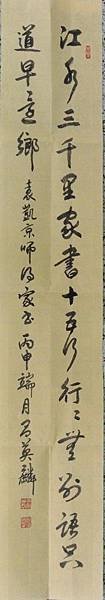 江水三千里家書十五行行〻無別語只
道早還鄉 袁凱京師得家書 丙申端月 呂英麟